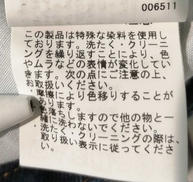 006511
この製品は特殊な染料を使用し
ております。洗たく・クリーニ
ングを繰り返すことにより、色
やムラなどの表情が変化してい
きます。次の点にご注意の上、
お取扱いください。
摩擦により色移りすることが
落ちしますので他の物と一
洗わないでください。
クリーニングの際は、
取り扱い表示に従ってくださ
い。